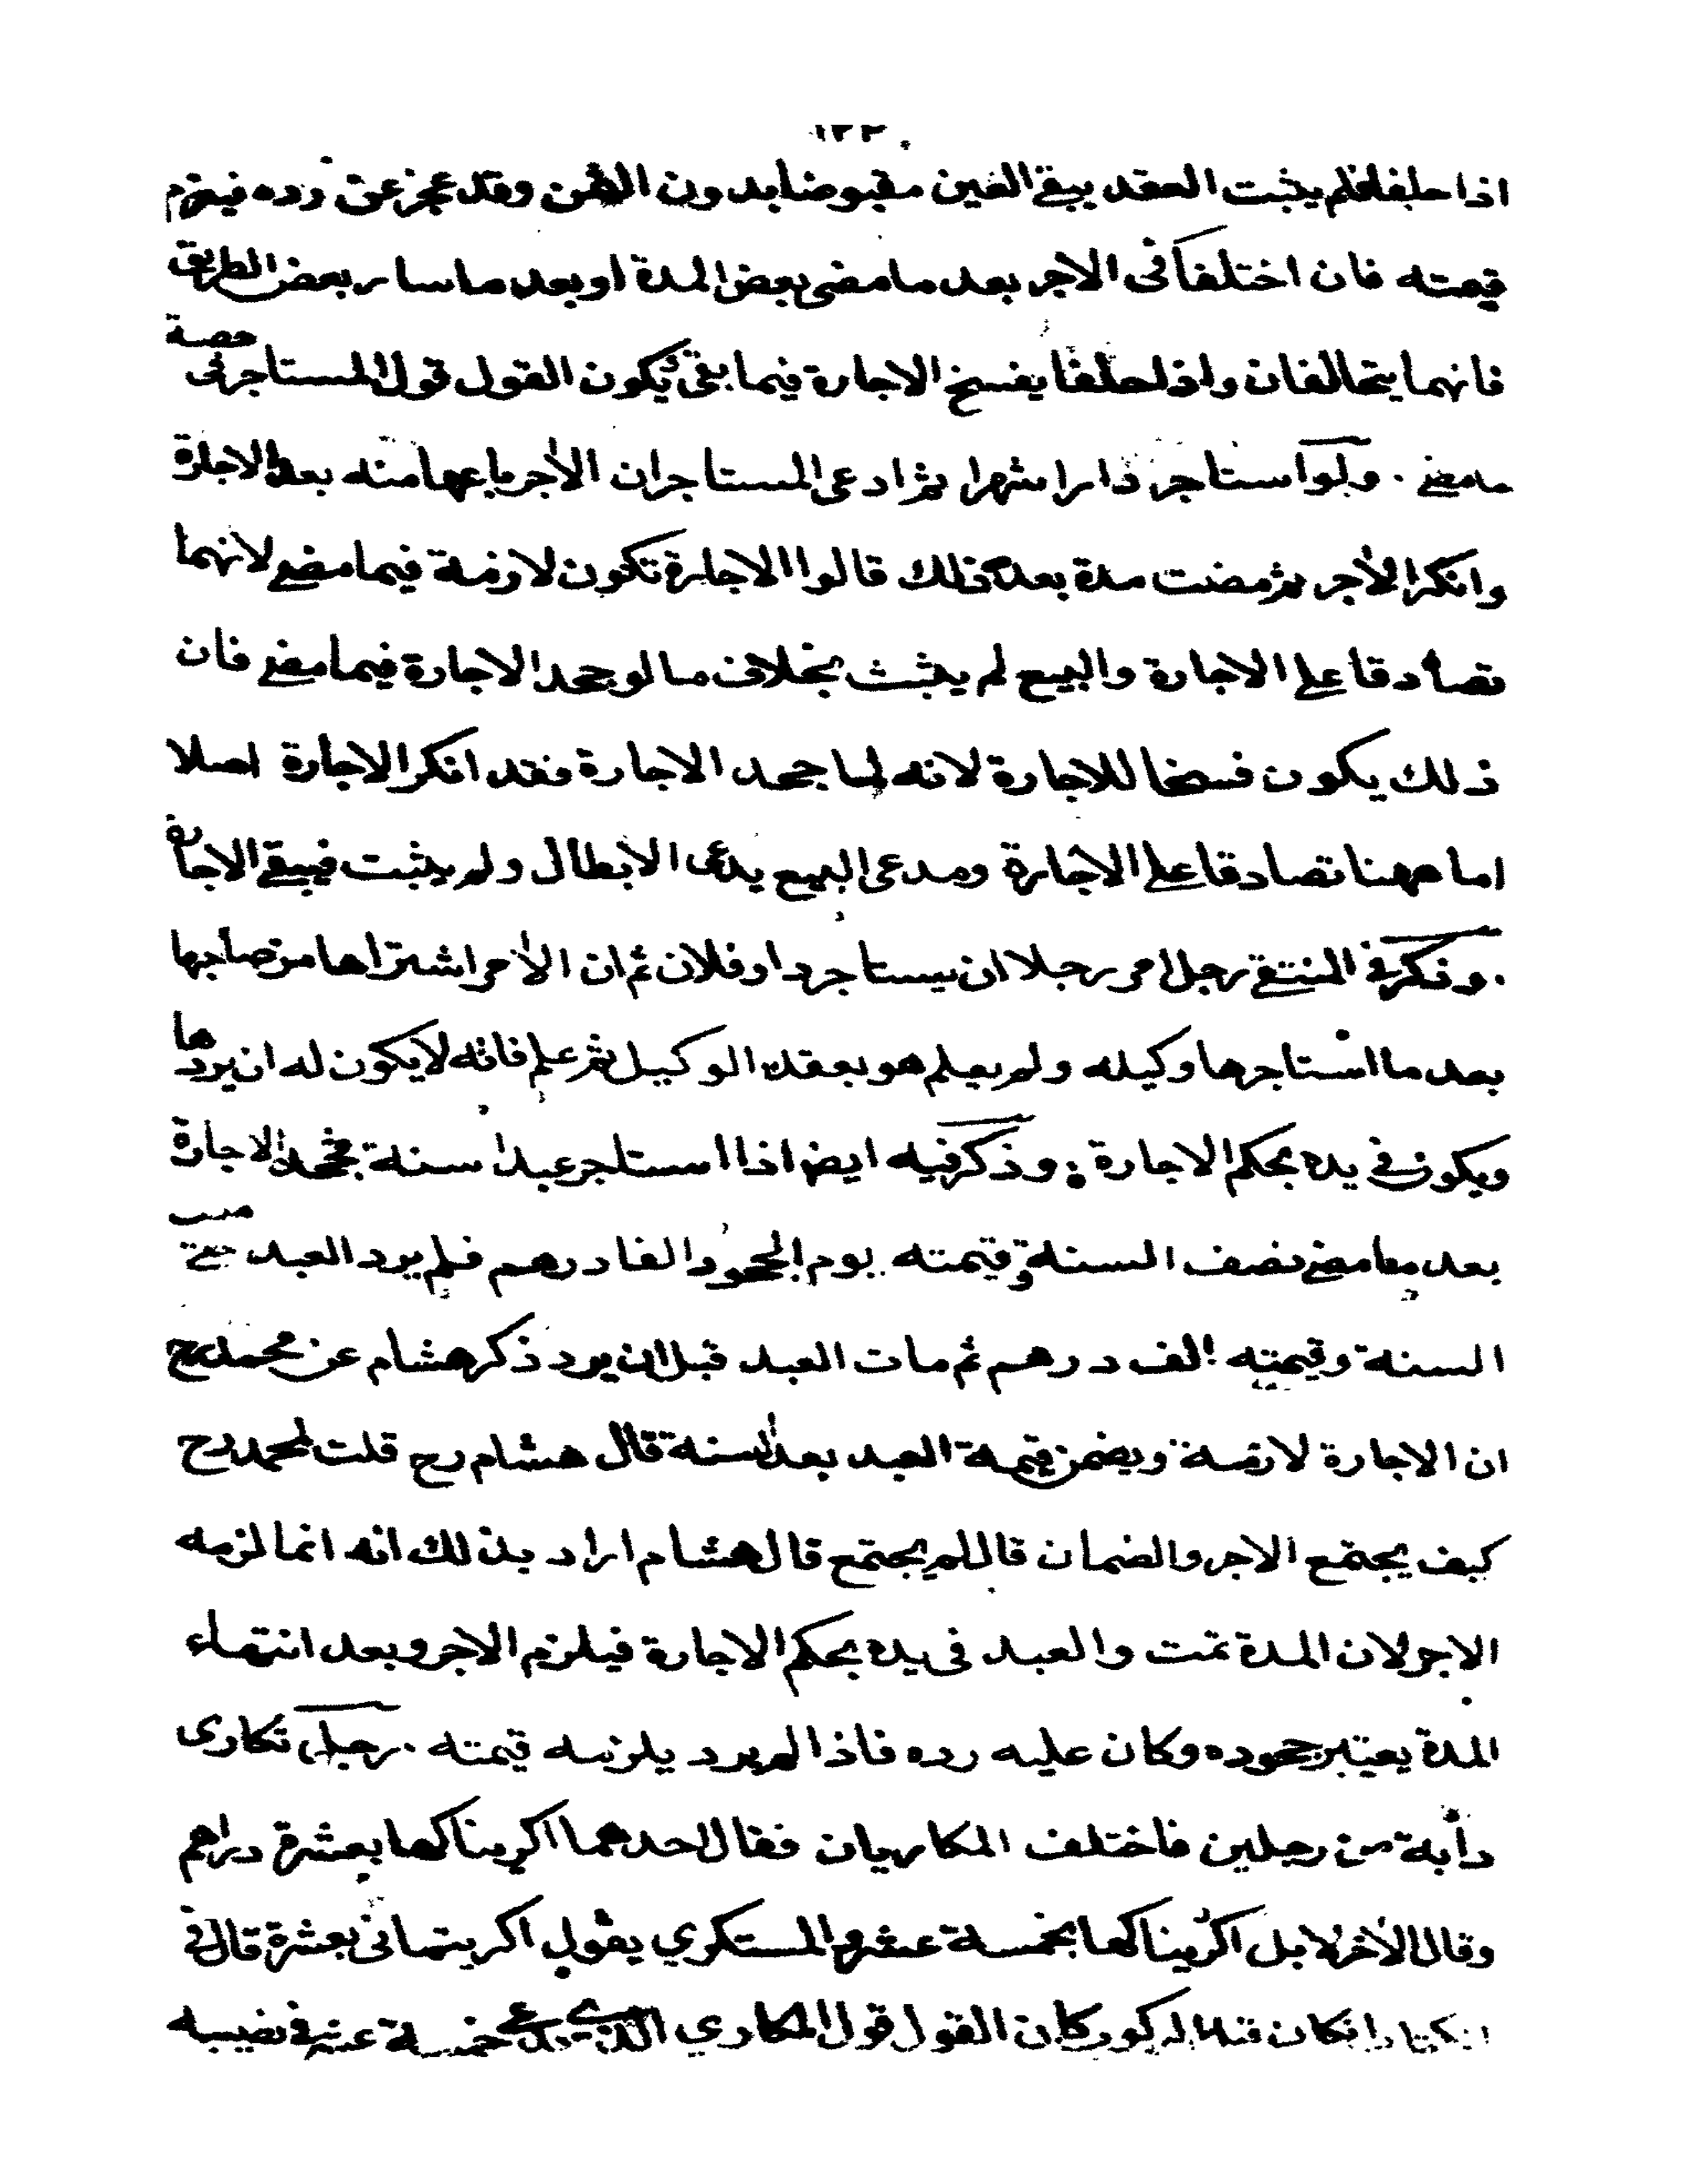 ١٣٢
اذا حلفا فلم يثبت العقد يبقى العين مقبوضا بدون الثمن وقد عجز عن رده فيغرم
قيمته فان اختلفا فى الاجر بعد ما مضى بعض المدة او بعد ما سار بعض الطريق
فانهما يتحالفان واذا حلفا يفسخ الاجارة فيما بقى ويكون القول قول المستاجر فى حصة
ما مضى . ولو استاجر دارا شهرا ثم ادعى المستاجر ان الآجر باعها منه بعد الاجارة
وانكر الآجر ثم مضت مدة بعد ذلك قالوا الاجارة تكون لازمة فيما مضى لانهما
تصادقا على الاجارة والبيع لم يثبت بخلاف ما لو جحد الاجارة فيما مضى فان
ذلك يكون فسخا للاجارة لانه لما جحد الاجارة فقد انكر الاجارة اصلا
اما ههنا تصادقا على الاجارة ومدعى البيع يدعى الابطال ولم يثبت فيبقى الاجارة
. وذكر فى المنتقى رجل امر رجلا ان يستاجر دار فلان ثم ان الآمر اشتراها من صاحبها
بعد ما استاجرها وكيله ولم يعلم هو بعقد الوكيل ثم علم فانه لا يكون له ان يردها
ويكون فى يده بحكم الاجارة . وذكر فيه ايضا اذا استاجر عبدا سنة فجحد الاجارة
بعد ما مضى نصف السنة وقيمته يوم الجحود الفا درهم فلم يرد العبد حتى مضت
السنة وقيمته الف درهم ثم مات العبد قبل ان يرد ذكر هشام عن محمد رح
ان الاجارة لازمة ويضمن قيمة العبد بعد السنة قال هشام رح قلت لمحمد رح
كيف يجتمع الاجر والضمان قال لم يجتمع قال هشام اراد بذلك انه انما لزمه
الاجر لان المدة تمت والعبد فى يده بحكم الاجارة فيلزم الاجر وبعد انتهاء
المدة يعتبر جحوده وكان عليه رده فاذا لم يرد يلزمه قيمته . رجل تكارى
دابة من رجلين فاختلف المكاريان فقال احدهما اكريناكها بعشرة دراهم
وقال الآخر لا بل اكريناكها بخمسة عشر والمستكري يقول اكريتمانى بعشرة قال فى
الكتاب ان كان قبل الركوب كان القول قول المكاري الذي يدعى خمسة عشر فى نصيبه